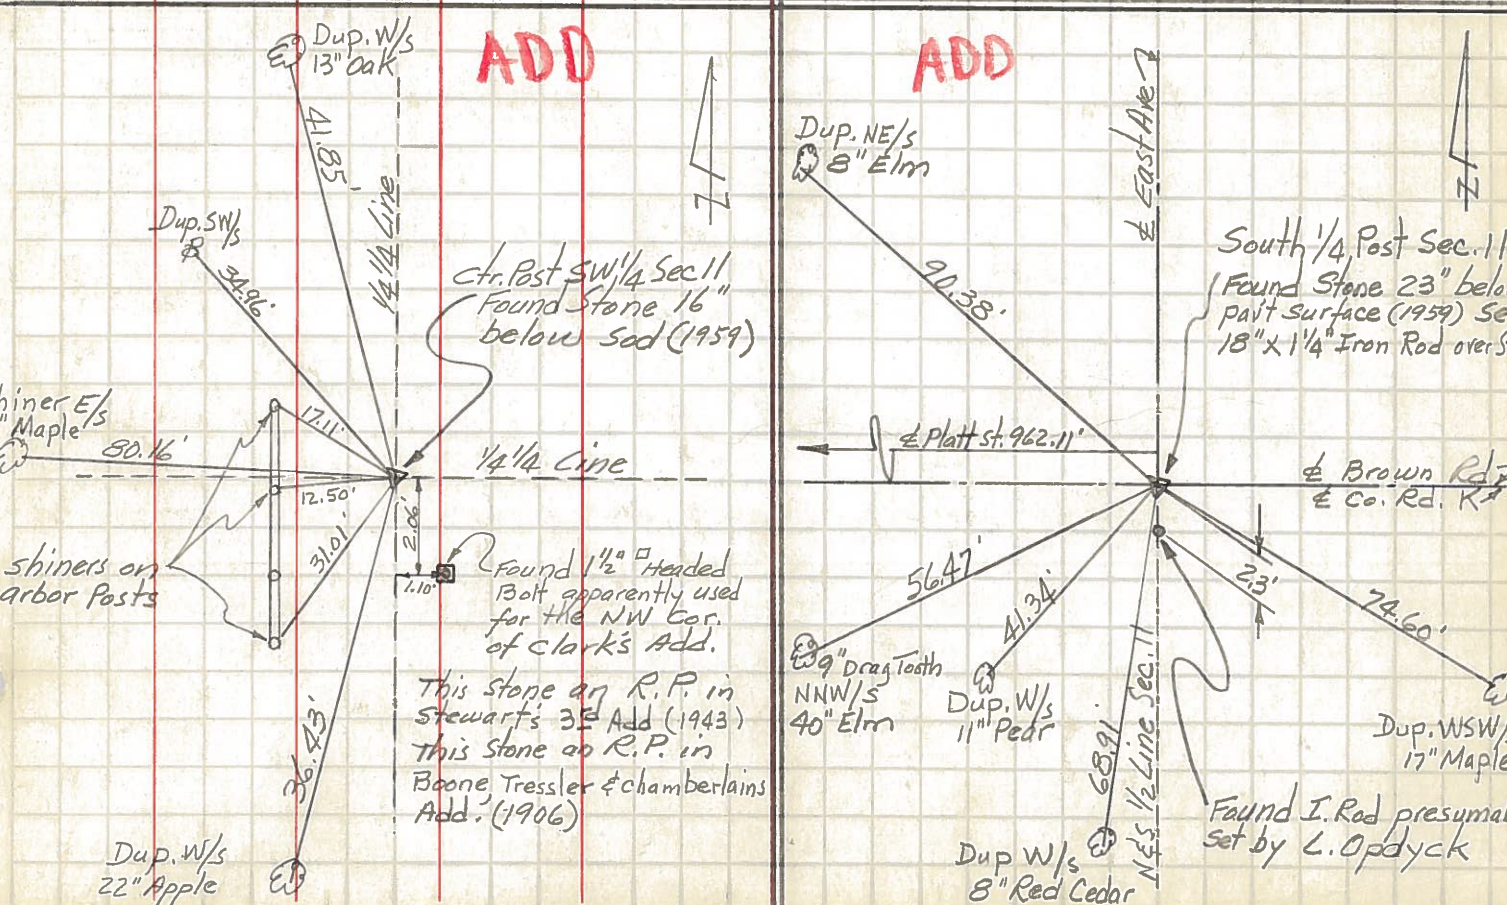 Dup. W/s
13" Oak
ADD
41.85'
1/4 1/4 Line
Dup. SW/s
34.96'
Ctr. Post SW 1/4 Sec 11
Found Stone 16"
below Sod (1959)
hiner E/s
" Maple
80.16'
17.11'
12.50'
31.01'
1/4 1/4 Line
2.06'
1.10'
shiners on
arbor Posts
Found 1 1/2" □ Headed
Bolt apparently used
for the NW Cor.
of Clark's Add.
This Stone an R.P. in
Stewart's 3rd Add (1943)
This Stone an R.P. in
Boone, Tressler & Chamberlains
Add. (1906)
36.43'
Dup. W/s
22" Apple
ADD
℄ East Ave
N
Dup. NE/s
8" Elm
90.38'
South 1/4 Post Sec. 11
Found Stone 23" belo
pav't Surface (1959) Se
18" X 1 1/4" Iron Rod over S
℄ Platt st. 962.11'
℄ Brown Rd
℄ Co. Rd. K
56.47'
41.34'
68.91'
2.3'
74.60'
9" Drag Tooth
NNW/s
40" Elm
Dup. W/s
11" Pear
N & S 1/2 Line Sec. 11
Dup. WSW/
17" Maple
Found I. Rod presuma
set by L. Opdyck
Dup W/s
8" Red Cedar